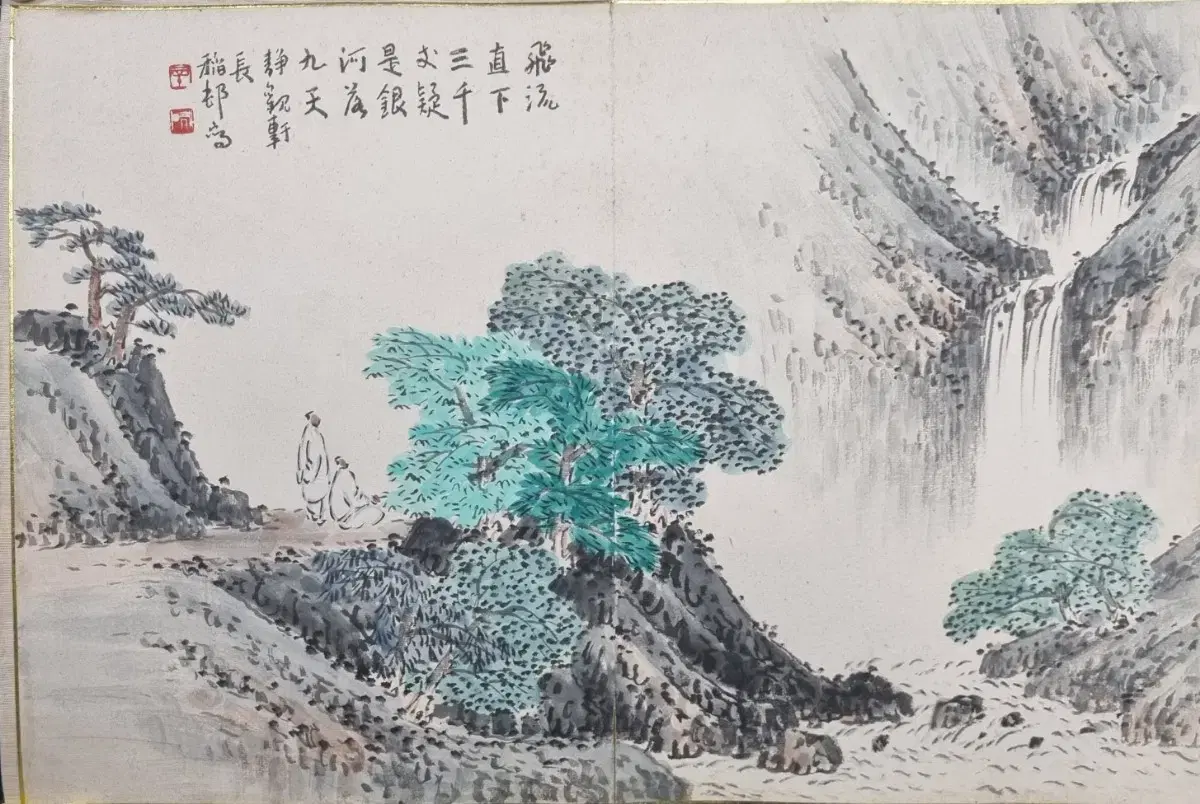 飛流
直下
三千
丈疑
是銀
河落
九天
静觀軒
長
稲邨寫